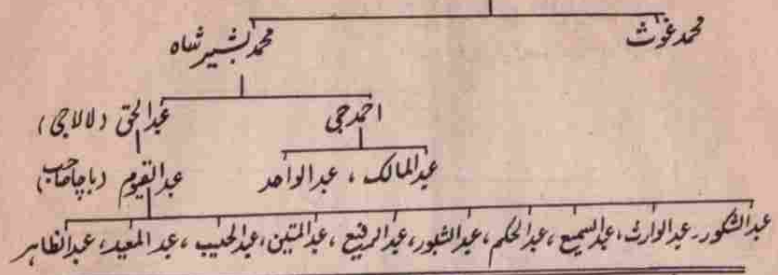 محمد غوث محمد بشیر شاہ
احمد جی عبدالحق (لالا جی)
عبدالمالک ، عبدالواحد عبدالقیوم (باچا صاحب)
عبدالشکور۔ عبدالوارث، عبدالسمیع ، عبدالحکم ، عبدالشبور، عبدالرفیع ، عبدالمتین، عبدالحبیب ، عبدالمعید، عبدالظاہر